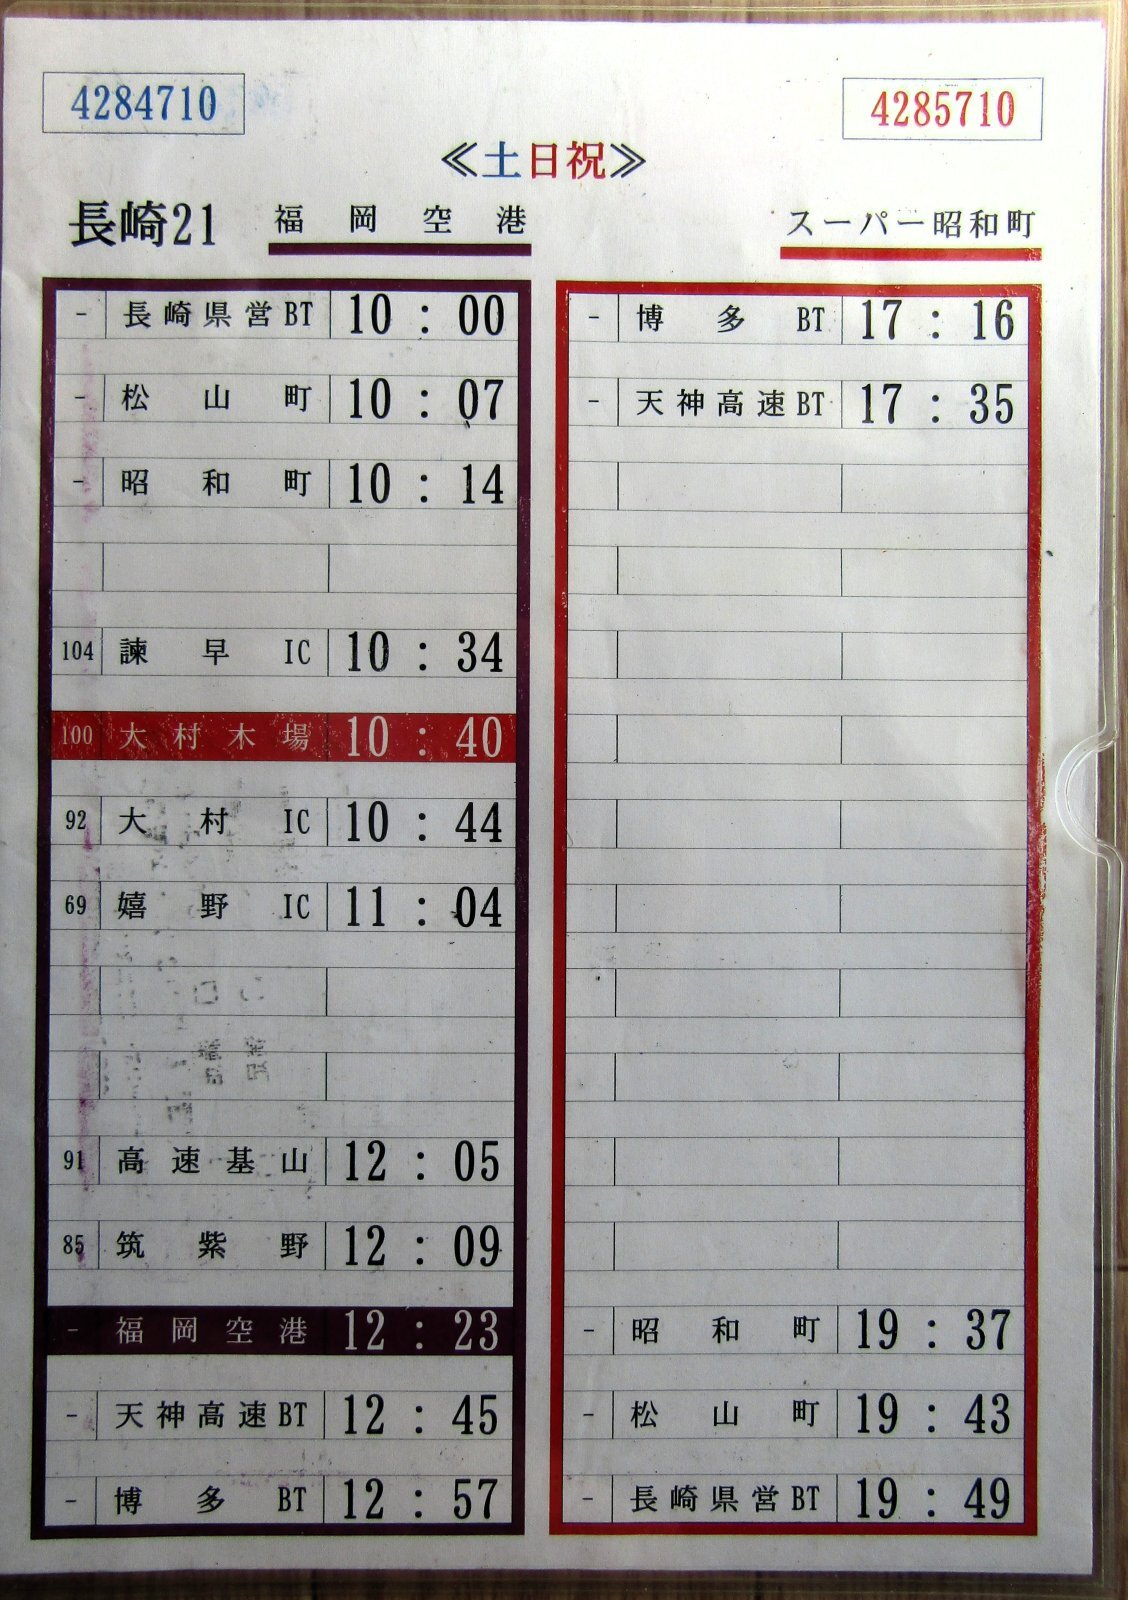 4284710
4285710
≪土日祝≫
長崎21 福岡空港
スーパー昭和町
- 長崎県営BT 10:00
- 松山町 10:07
- 昭和町 10:14
104 諫早IC 10:34
100 大村木場 10:40
92 大村IC 10:44
69 嬉野IC 11:04
91 高速基山 12:05
85 筑紫野 12:09
- 福岡空港 12:23
- 天神高速BT 12:45
- 博多BT 12:57
- 博多BT 17:16
- 天神高速BT 17:35
- 昭和町 19:37
- 松山町 19:43
- 長崎県営BT 19:49